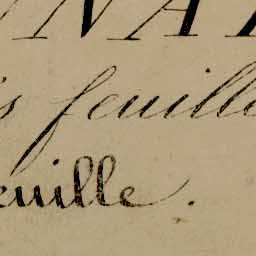 NAL
s feuille
euille.